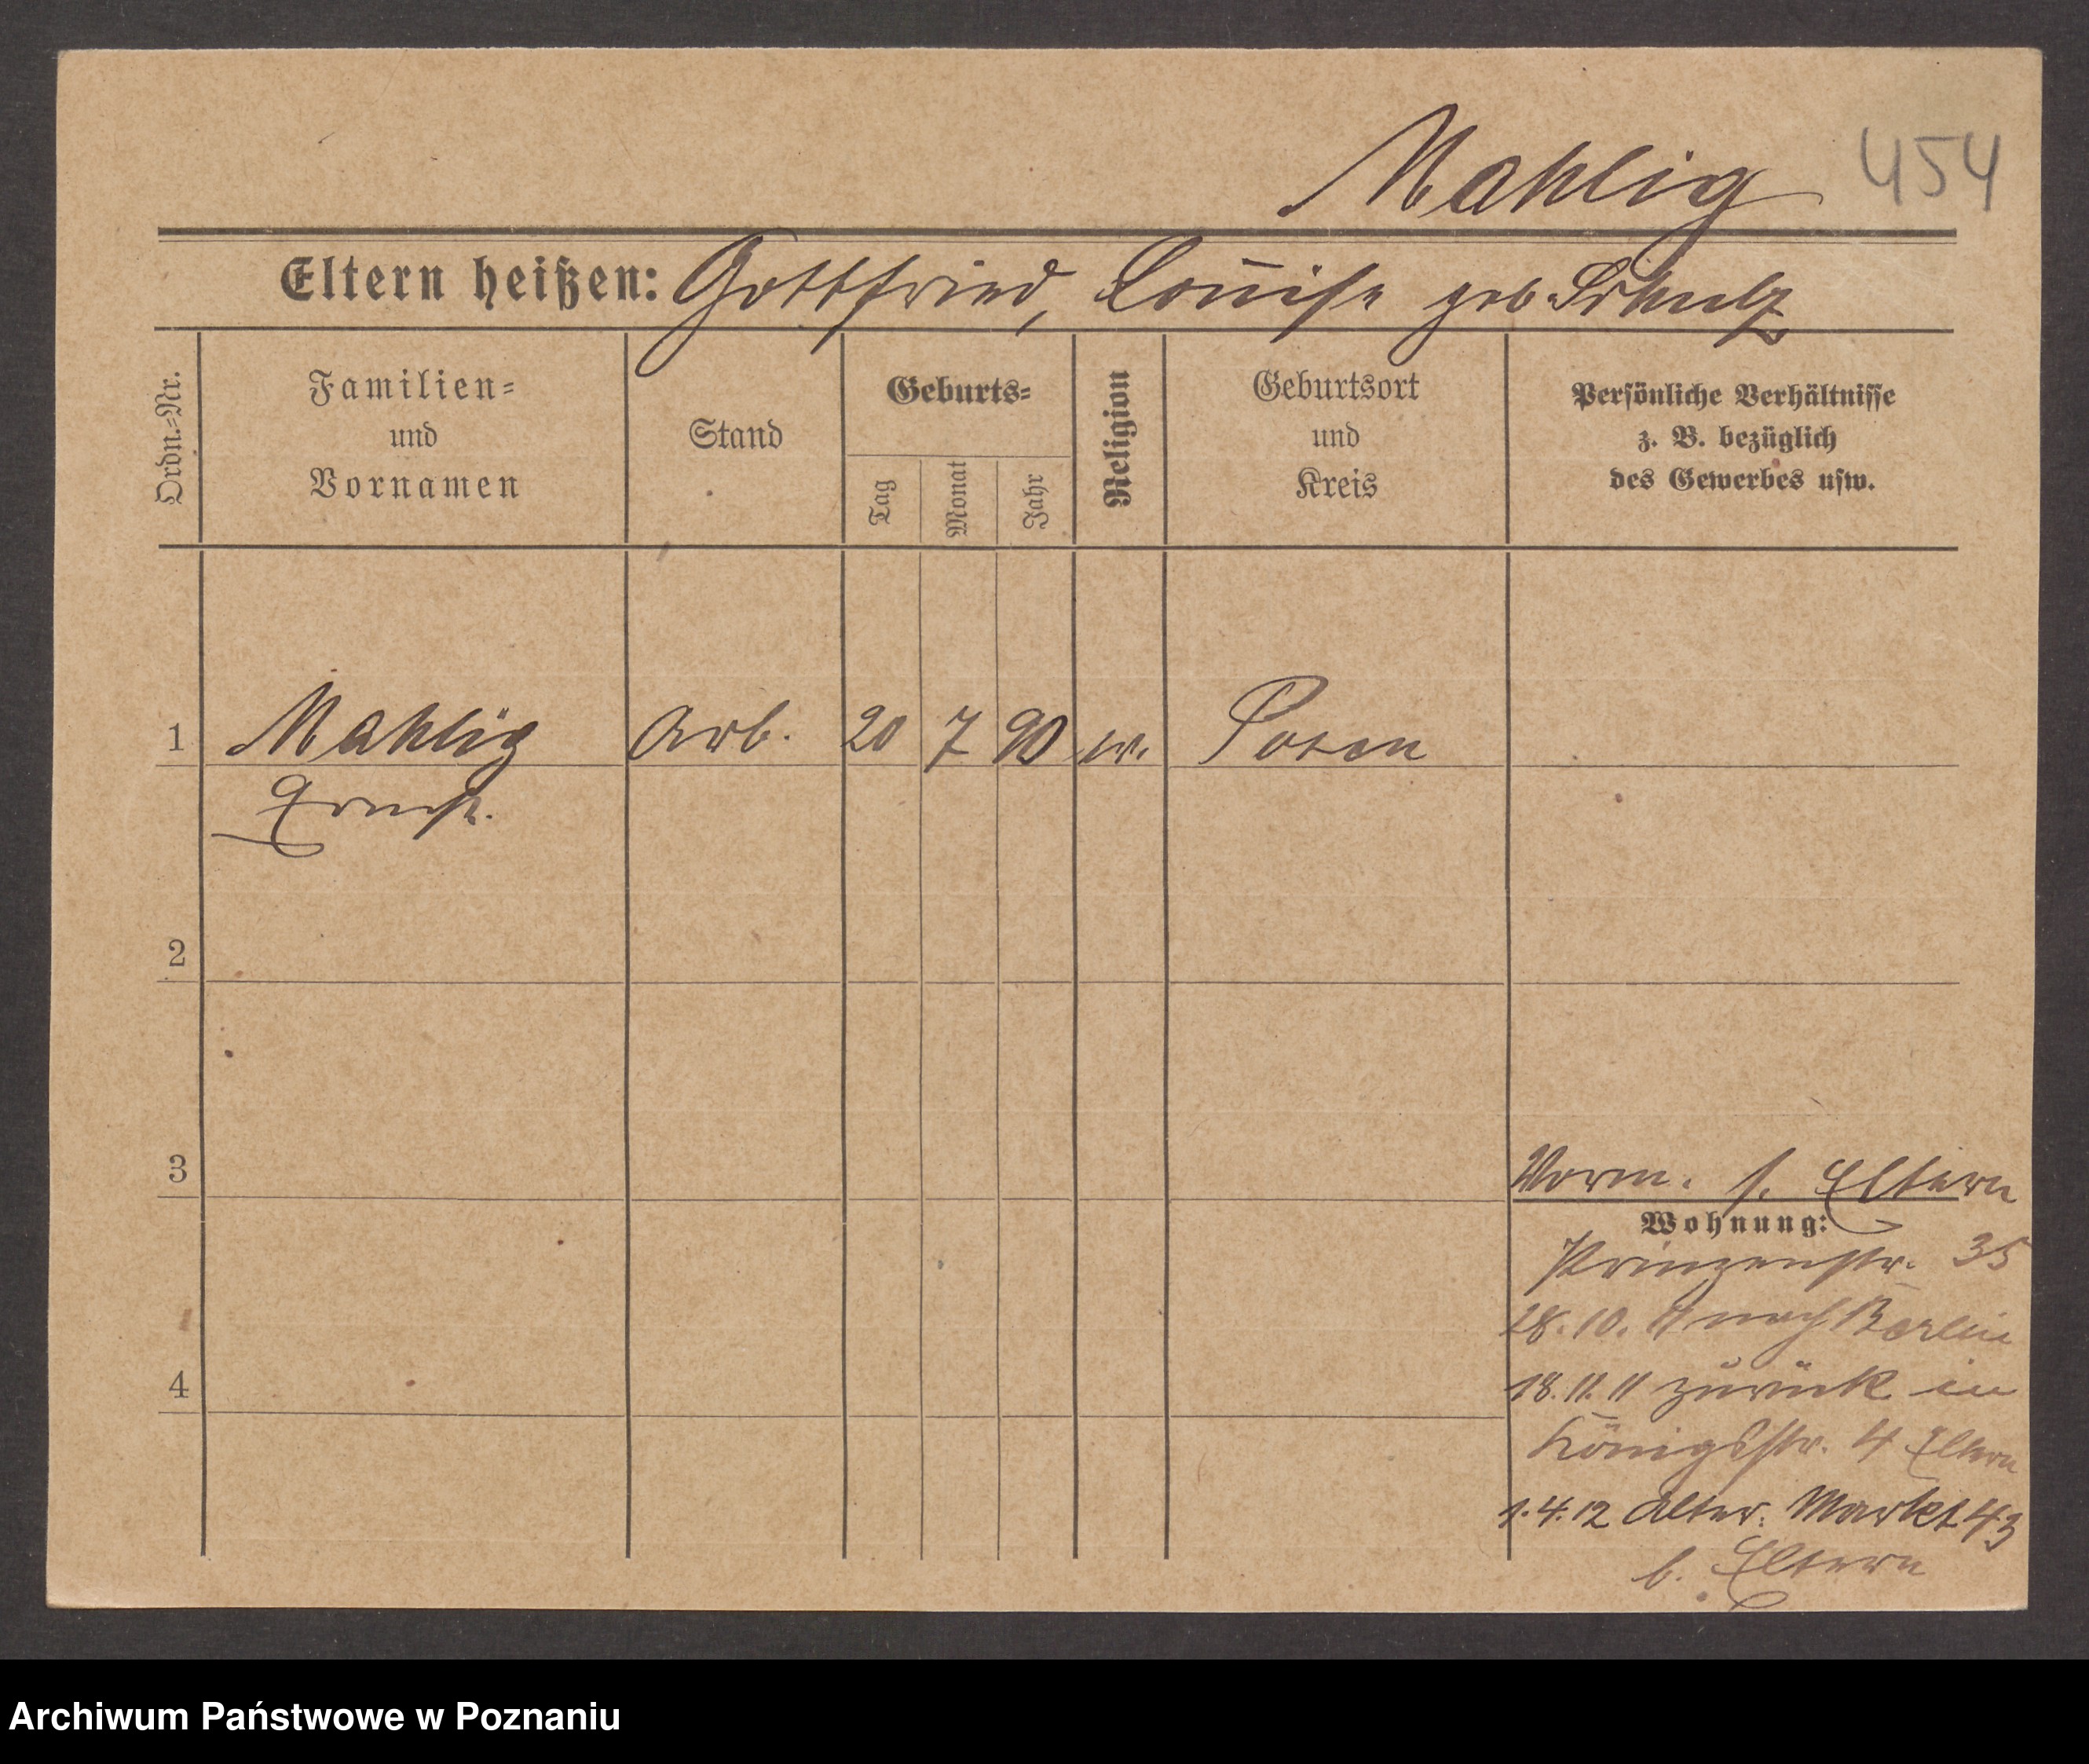 Mahlig 454
Eltern heißen: Gottfried, Louise geb. Schulz
Ordn.-Nr.
Familien-
und
Vornamen
Stand
Geburts-
Tag
Monat
Jahr
Religion
Geburtsort
und
Kreis
Persönliche Verhältnisse
z. B. bezüglich
des Gewerbes usw.
1 Mahlig Arb. 20 7 90 ev. Posen
Ernst.
2
3
Vorm. s. Eltern
Wohnung:
Prinzenstr. 35
28. 10. 11 nach Berlin
4
18. 11. 11 zurück in
Königsstr. 4 Eltern
1. 4. 12 Alter. Markt 43
b. Eltern
Archiwum Państwowe w Poznaniu